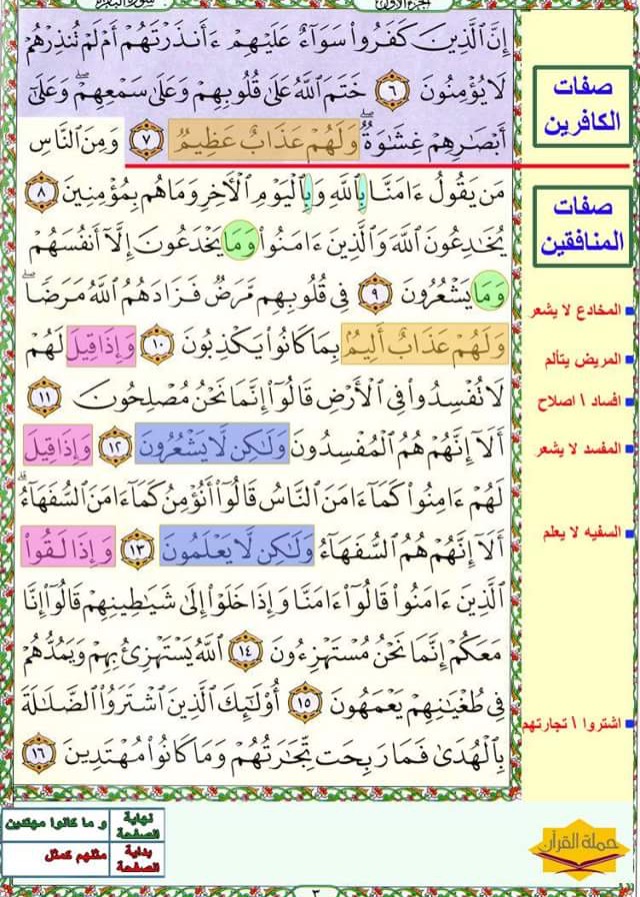 سورة البقرة
الجزء الأول
إِنَّ ٱلَّذِينَ كَفَرُوا۟ سَوَآءٌ عَلَيْهِمْ ءَأَنذَرْتَهُمْ أَمْ لَمْ تُنذِرْهُمْ
لَا يُؤْمِنُونَ ٦ خَتَمَ ٱللَّهُ عَلَىٰ قُلُوبِهِمْ وَعَلَىٰ سَمْعِهِمْ ۖ وَعَلَىٰٓ
أَبْصَٰرِهِمْ غِشَٰوَةٌ ۖ وَلَهُمْ عَذَابٌ عَظِيمٌ ٧ وَمِنَ ٱلنَّاسِ
مَن يَقُولُ ءَامَنَّا بِٱللَّهِ وَبِٱلْيَوْمِ ٱلْءَاخِرِ وَمَا هُم بِمُؤْمِنِينَ ٨
يُخَٰدِعُونَ ٱللَّهَ وَٱلَّذِينَ ءَامَنُوا۟ وَمَا يَخْدَعُونَ إِلَّآ أَنفُسَهُمْ
وَمَا يَشْعُرُونَ ٩ فِى قُلُوبِهِم مَّرَضٌ فَزَادَهُمُ ٱللَّهُ مَرَضًا ۖ
وَلَهُمْ عَذَابٌ أَلِيمٌۢ بِمَا كَانُوا۟ يَكْذِبُونَ ١٠ وَإِذَا قِيلَ لَهُمْ
لَا تُفْسِدُوا۟ فِى ٱلْأَرْضِ قَالُوٓا۟ إِنَّمَا نَحْنُ مُصْلِحُونَ ١١
أَلَآ إِنَّهُمْ هُمُ ٱلْمُفْسِدُونَ وَلَٰكِن لَّا يَشْعُرُونَ ١٢ وَإِذَا قِيلَ
لَهُمْ ءَامِنُوا۟ كَمَآ ءَامَنَ ٱلنَّاسُ قَالُوٓا۟ أَنُؤْمِنُ كَمَآ ءَامَنَ ٱلسُّفَهَآءُ ۗ
أَلَآ إِنَّهُمْ هُمُ ٱلسُّفَهَآءُ وَلَٰكِن لَّا يَعْلَمُونَ ١٣ وَإِذَا لَقُوا۟
ٱلَّذِينَ ءَامَنُوا۟ قَالُوٓا۟ ءَامَنَّا وَإِذَا خَلَوْا۟ إِلَىٰ شَيَٰطِينِهِمْ قَالُوٓا۟ إِنَّا
مَعَكُمْ إِنَّمَا نَحْنُ مُسْتَهْزِءُونَ ١٤ ٱللَّهُ يَسْتَهْزِئُ بِهِمْ وَيَمُدُّهُمْ
فِى طُغْيَٰنِهِمْ يَعْمَهُونَ ١٥ أُو۟لَٰٓئِكَ ٱلَّذِينَ ٱشْتَرَوُا۟ ٱلضَّلَٰلَةَ
بِٱلْهُدَىٰ فَمَا رَبِحَت تِّجَٰرَتُهُمْ وَمَا كَانُوا۟ مُهْتَدِينَ ١٦
صفات
الكافرين
صفات
المنافقين
المخادع لا يشعر
المريض يتألم
افساد \ اصلاح
المفسد لا يشعر
السفيه لا يعلم
اشتروا \ تجارتهم
نهاية الصفحة و ما كانوا مهتدين
بداية الصفحة مثلهم كمثل
حملة القرآن
٣